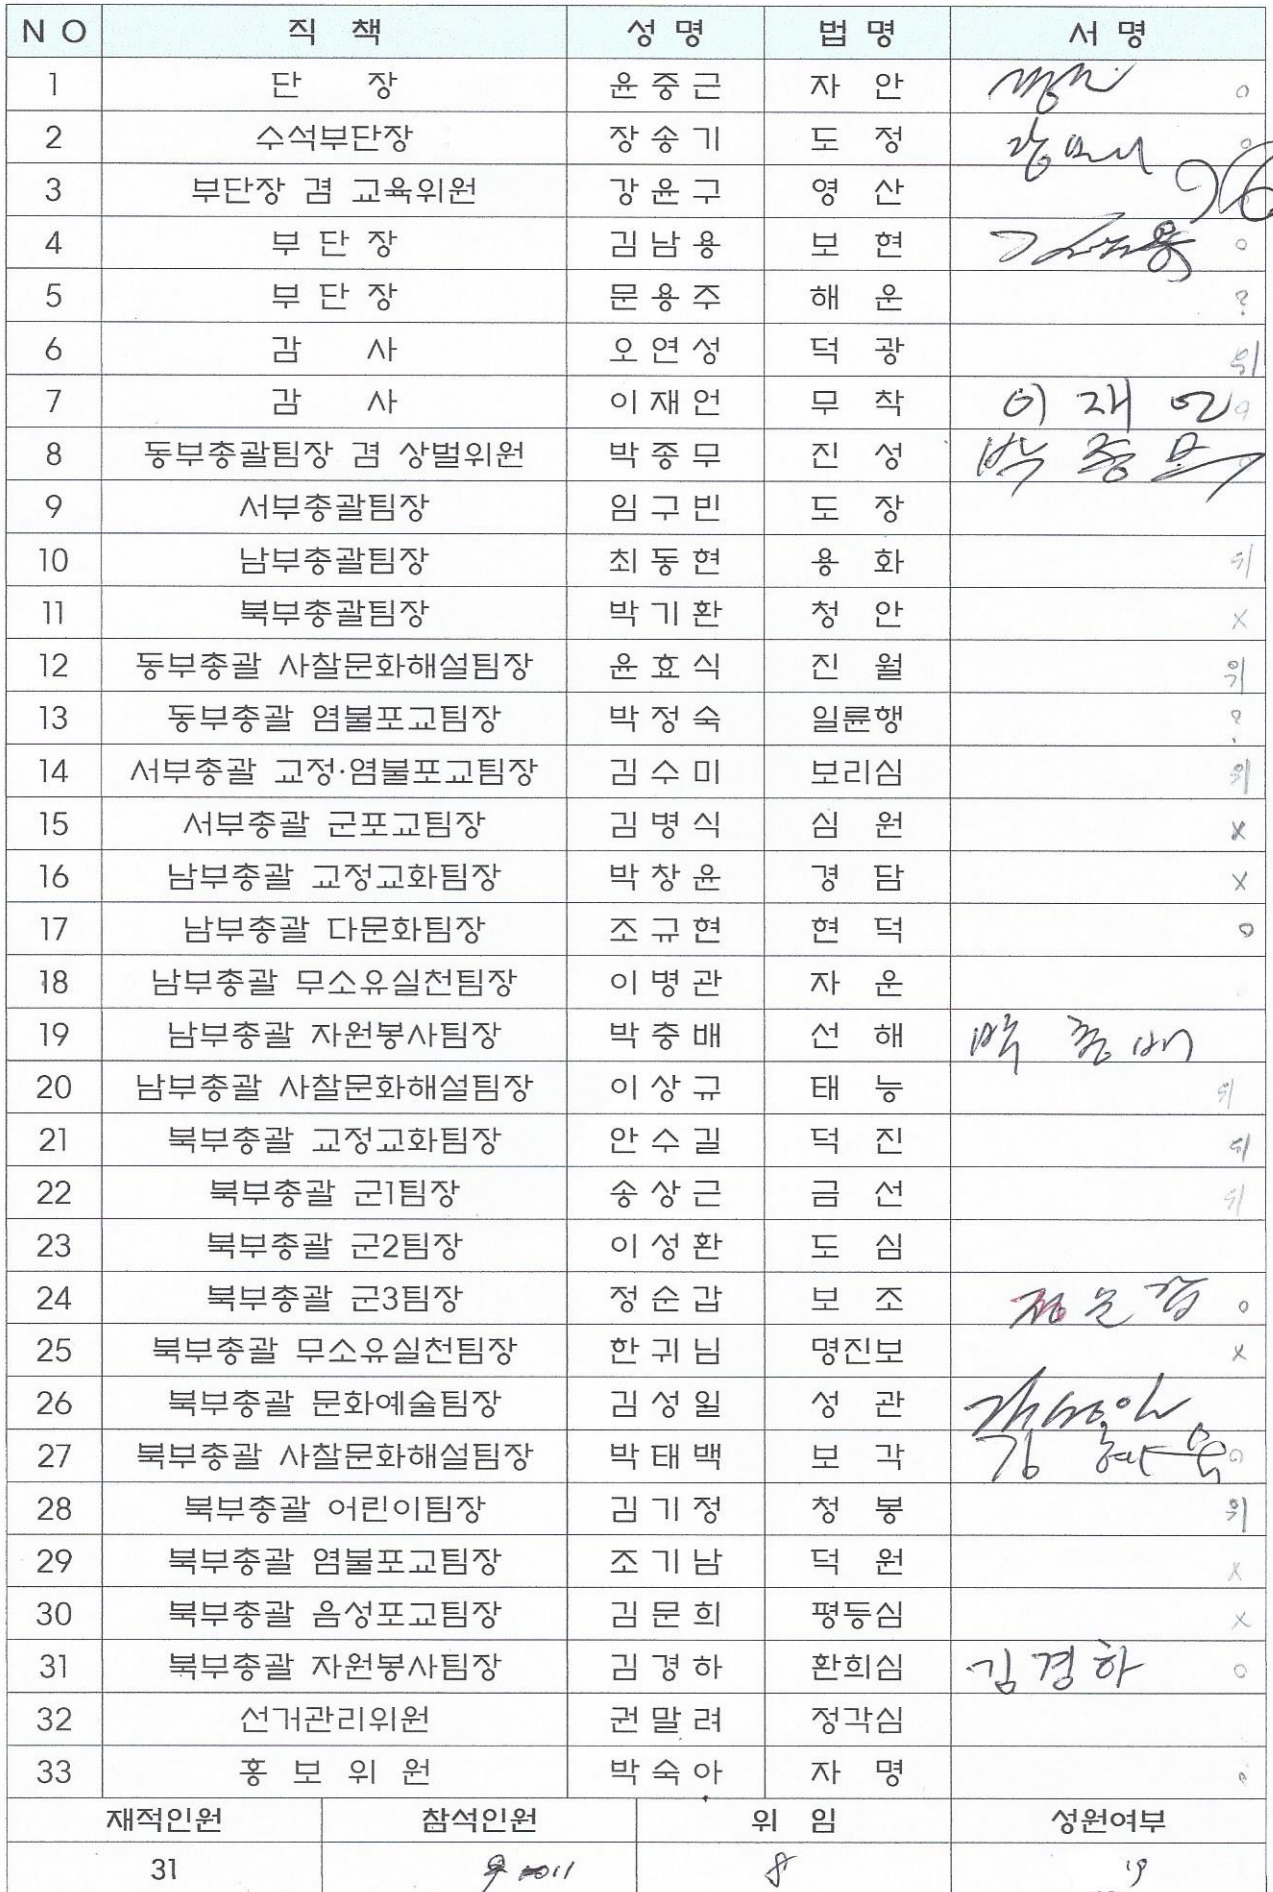 NO 직 책 성명 법명 서명
1 단 장 윤중근 자 안 ○
2 수석부단장 장송기 도 정 ○
3 부단장 겸 교육위원 강윤구 영 산
4 부단장 김남용 보 현 김남용 ○
5 부단장 문용주 해 운 ?
6 감 사 오연성 덕 광 위
7 감 사 이재언 무 착 이재언
8 동부총괄팀장 겸 상벌위원 박종무 진 성 박종무
9 서부총괄팀장 임구빈 도 장
10 남부총괄팀장 최동현 용 화 위
11 북부총괄팀장 박기환 청 안 x
12 동부총괄 사찰문화해설팀장 윤효식 진 월 위
13 동부총괄 염불포교팀장 박정숙 일륜행 ?
14 서부총괄 교정·염불포교팀장 김수미 보리심 위
15 서부총괄 군포교팀장 김병식 심 원 x
16 남부총괄 교정교화팀장 박창윤 경 담 x
17 남부총괄 다문화팀장 조규현 현 덕 ○
18 남부총괄 무소유실천팀장 이병관 자 운
19 남부총괄 자원봉사팀장 박충배 선 해 박충배
20 남부총괄 사찰문화해설팀장 이상규 태 능 위
21 북부총괄 교정교화팀장 안수길 덕 진 위
22 북부총괄 군1팀장 송상근 금 선 위
23 북부총괄 군2팀장 이성환 도 심
24 북부총괄 군3팀장 정순갑 보 조 정순갑 ○
25 북부총괄 무소유실천팀장 한귀님 명진보 x
26 북부총괄 문화예술팀장 김성일 성 관 김성일
27 북부총괄 사찰문화해설팀장 박태백 보 각 ○
28 북부총괄 어린이팀장 김기정 청 봉 위
29 북부총괄 염불포교팀장 조기남 덕 원 x
30 북부총괄 음성포교팀장 김문희 평등심 x
31 북부총괄 자원봉사팀장 김경하 환희심 김경하 ○
32 선거관리위원 권말려 정각심
33 홍보위원 박숙아 자 명
재적인원 참석인원 위 임 성원여부
31 11 8 19